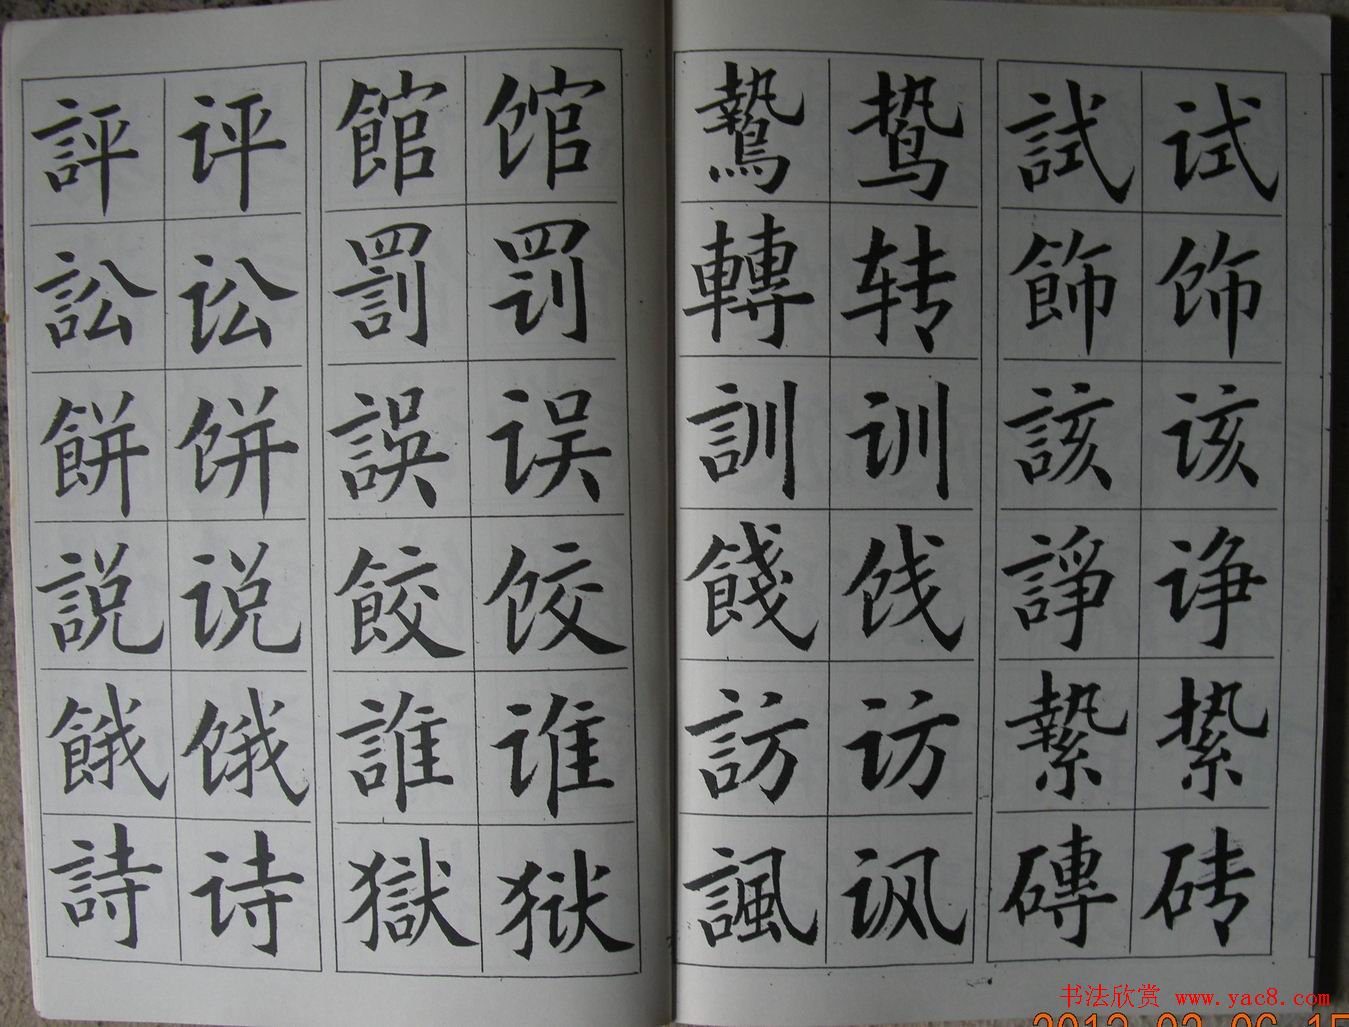 評 评 館 馆 鷙 鸷 試 试
訟 讼 罰 罚 轉 转 飾 饰
餅 饼 誤 误 訓 训 該 该
説 说 餃 饺 餞 饯 諍 诤
餓 饿 誰 谁 訪 访 縶 絷
詩 诗 獄 狱 諷 讽 磚 砖
书法欣赏 www.yac8.com